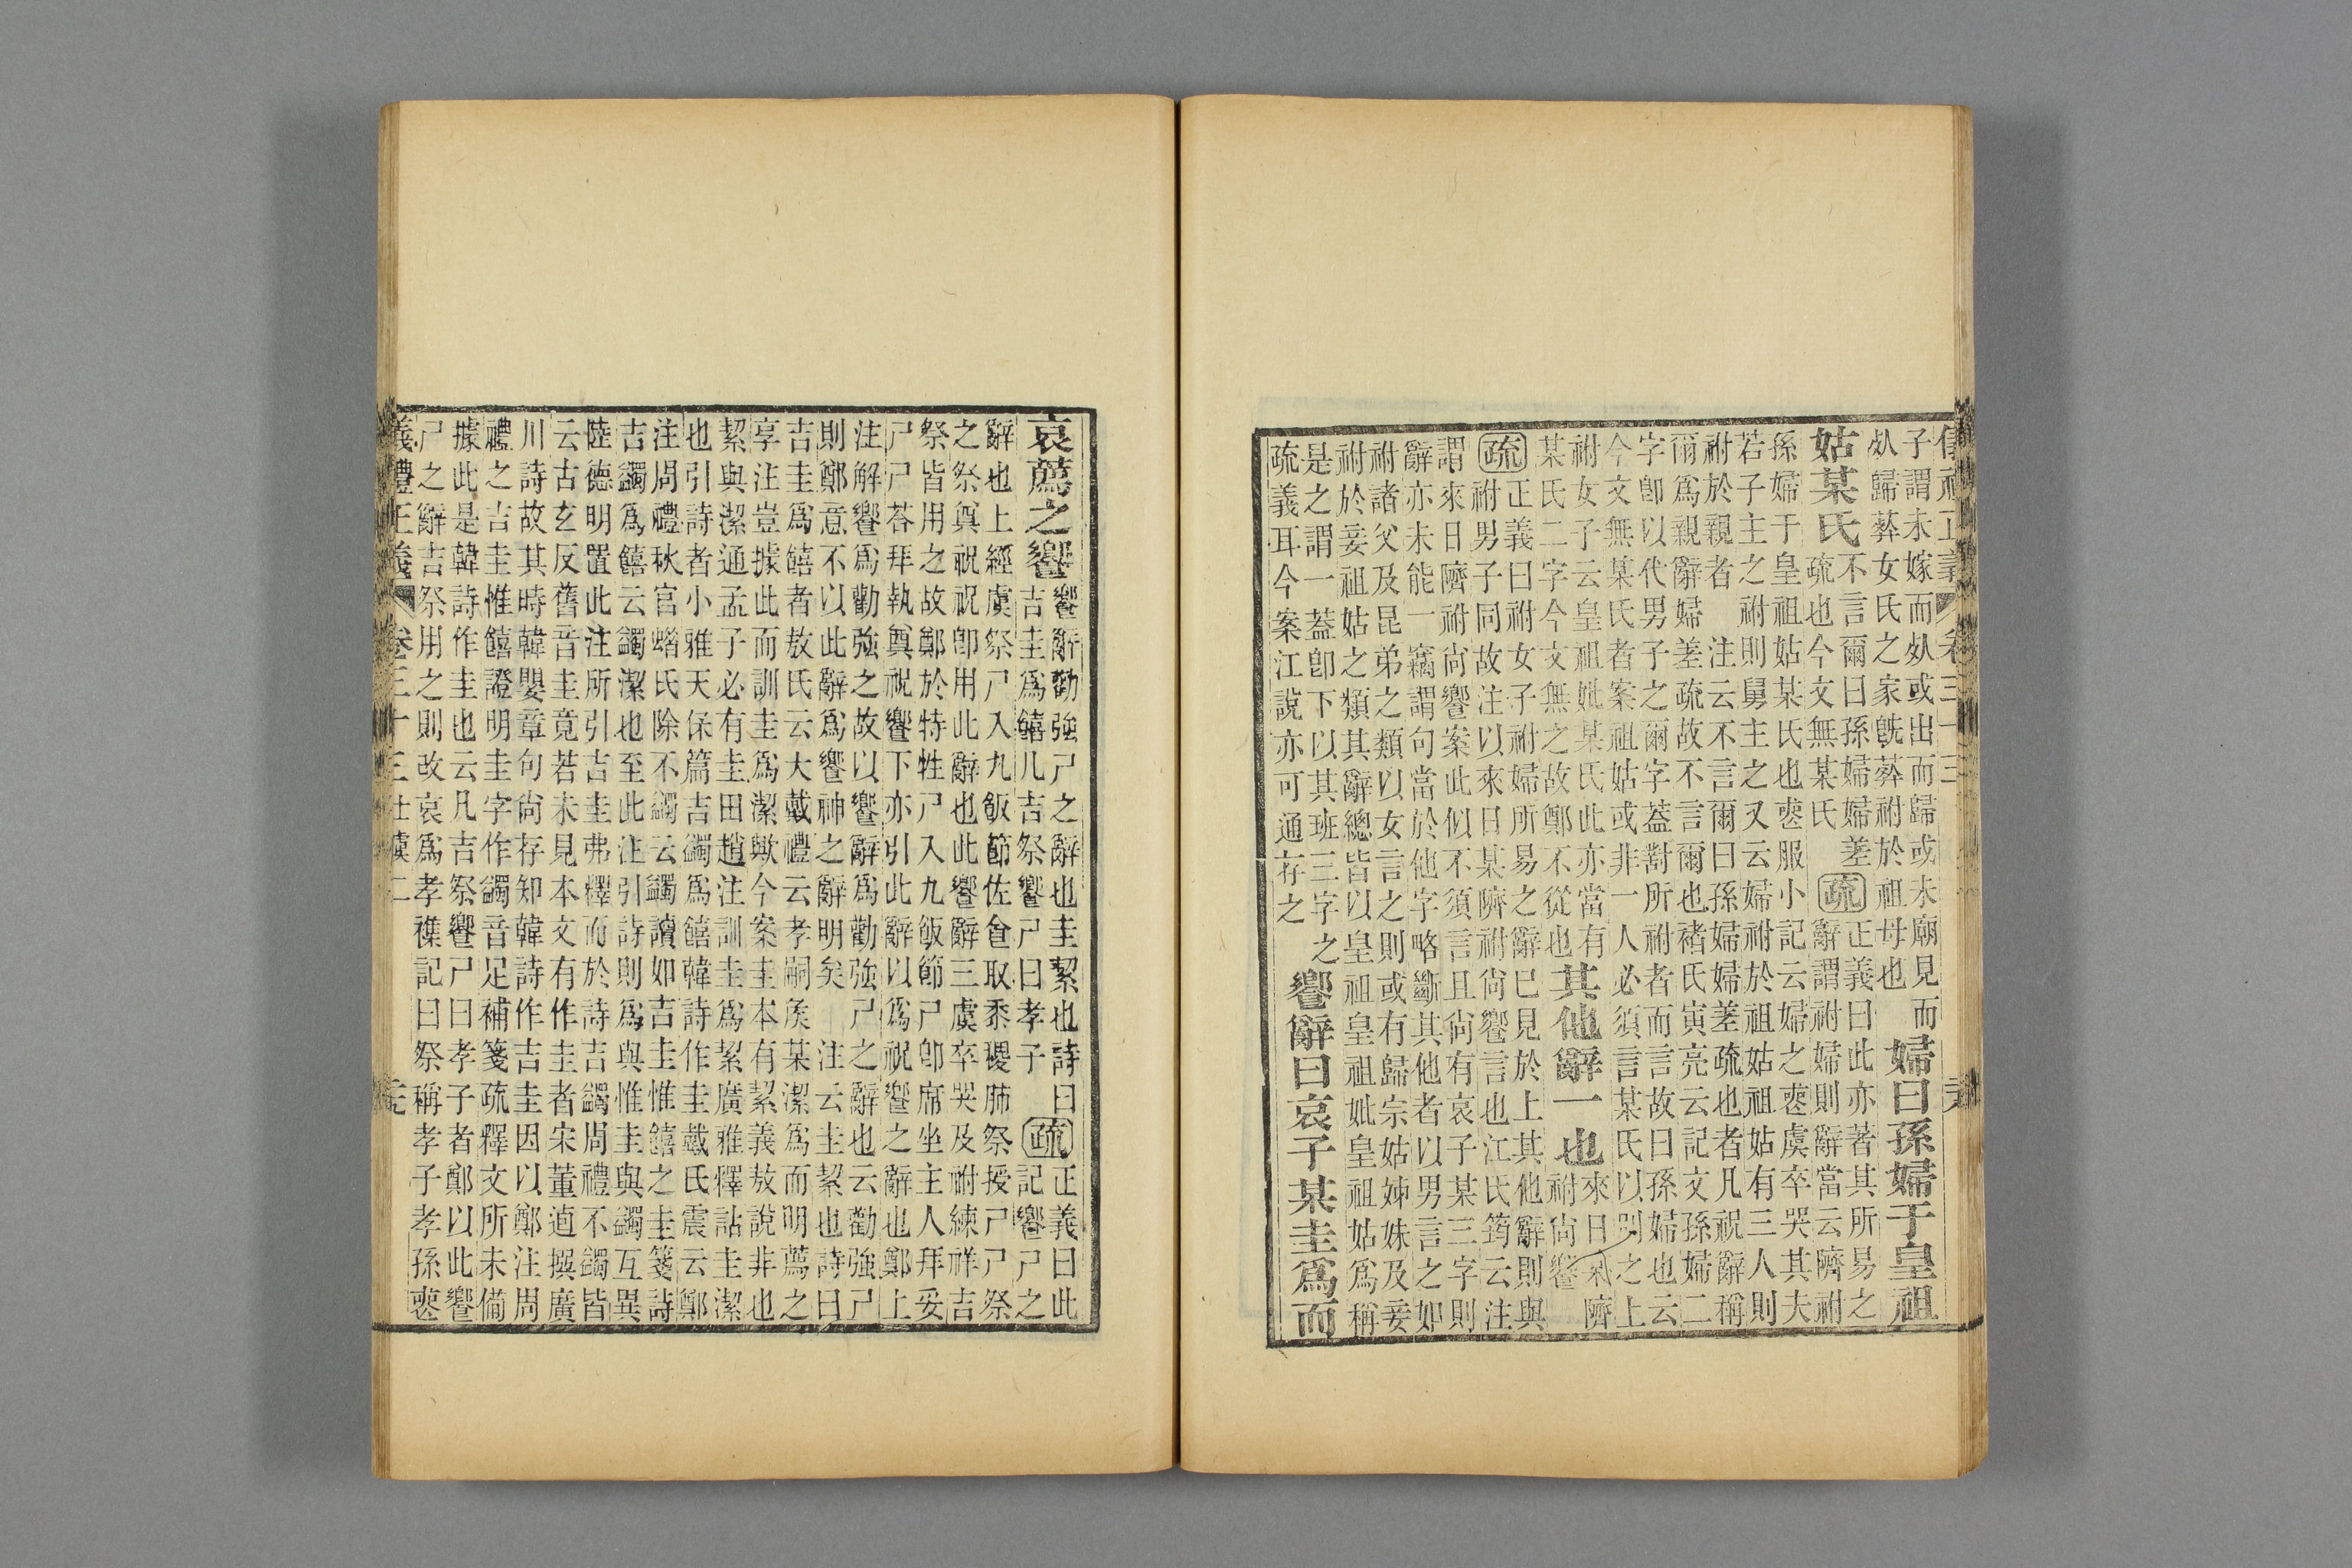 儀禮正義　卷三十三
子謂未嫁而𣦸或出而歸或未廟見而
𣦸歸葬女氏之家旣葬祔於祖母也
婦曰孫婦于皇祖
姑某氏
不言爾曰孫婦婦差
疏也今文無某氏
疏
正義曰此亦著其所易之
辭謂祔婦則辭當云隮祔
孫婦于皇祖姑某氏也喪服小記云婦之喪虞卒哭其夫
若子主之祔則舅主之又云婦祔於祖姑祖姑有三人則
祔於親者　注云不言爾曰孫婦婦差疏也者凡祝辭稱
爾爲親辭婦差疏故不言爾也褚氏寅亮云記文孫婦二
字卽以代男子之爾字蓋對所祔者而言故曰孫婦也云
今文無某氏者案祖姑或非一人必須言某氏以別之上
祔女子云皇祖妣某氏此亦當有
某氏二字今文無之故鄭不從也
其他辭一也
來日某隮
祔尙饗
疏
正義曰祔女子祔婦所易之辭巳見於上其他辭則與
祔男子同故注以來日某隮祔尙饗言也江氏筠云注
謂來日隮祔尙饗案此似不須言且尙有哀子某三字則
辭亦未能一竊謂句當於他字略斷其他者以男言之如
祔諸父及昆弟之類以女言之則或有歸宗姑姊妹及妾
祔於妾祖姑之類其辭總皆以皇祖皇祖妣皇祖姑爲稱
是之謂一蓋卽下以其班三字之
疏義耳今案江說亦可通存之
饗辭曰哀子某圭爲而
哀薦之饗
饗辭勸強尸之辭也圭絜也詩曰
吉圭爲饎凡吉祭饗尸曰孝子
疏
正義曰此
記饗尸之
辭也上經虞祭尸入九飯節佐食取黍稷肺祭授尸尸祭
之祭奠祝祝卽用此辭也此饗辭三虞卒哭及祔練祥吉
祭皆用之故鄭於特牲尸入九飯節尸卽席坐主人拜妥
尸尸荅拜執奠祝饗下亦引此辭以爲祝饗之辭也鄭上
注解饗爲勸強之故以饗辭爲勸強尸之辭也云勸強尸
則鄭意不以此辭爲饗神之辭明矣　注云圭絜也詩曰
吉圭爲饎者敖氏云大戴禮云孝嗣侯某潔爲而明薦之
享注豈據此而訓圭爲潔歟今案圭本有絜義敖說非也
絜與潔通孟子必有圭田趙注訓圭爲絜廣雅釋詁圭潔
也引詩者小雅天保篇吉蠲爲饎韓詩作圭戴氏震云鄭
注周禮秋官蜡氏除不蠲云蠲讀如吉圭惟饎之圭箋詩
吉蠲爲饎云蠲潔也至此注引詩則爲與惟圭與蠲互異
陸德明置此注所引吉圭弗釋而於詩吉蠲周禮不蠲皆
云古玄反舊音圭竟若未見本文有作圭者宋董逌撰廣
川詩故其時韓嬰章句尙存知韓詩作吉圭因以鄭注周
禮之吉圭惟饎證明圭字作蠲音足補箋疏釋文所未備
據此是韓詩作圭也云凡吉祭饗尸曰孝子者鄭以此饗
尸之辭吉祭用之則改哀爲孝襍記曰祭稱孝子孝孫喪
儀禮正義　卷三十三士虞二